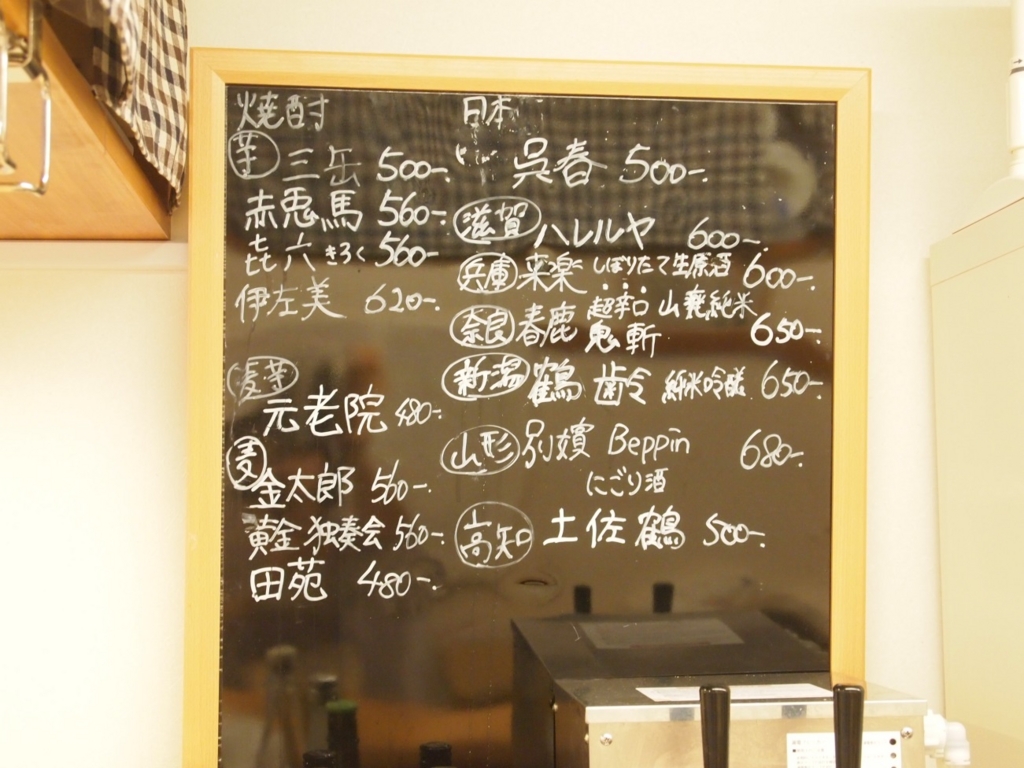 焼酎
芋 三岳 500-.
赤兎馬 560-.
㐂六 きろく 560-.
伊左美 620-.
麦芋
元老院 480-.
麦
金太郎 560-.
黄金独奏会 560-.
田苑 480-.
日本
呉春 500-.
滋賀 ハレルヤ 600-.
兵庫 来楽 しぼりたて生原酒 600-.
奈良 春鹿 超辛口 山廃純米
鬼斬 650-.
新潟 鶴齢 純米吟醸 650-.
山形 別嬪 Beppin 680-.
にごり酒
高知 土佐鶴 500-.